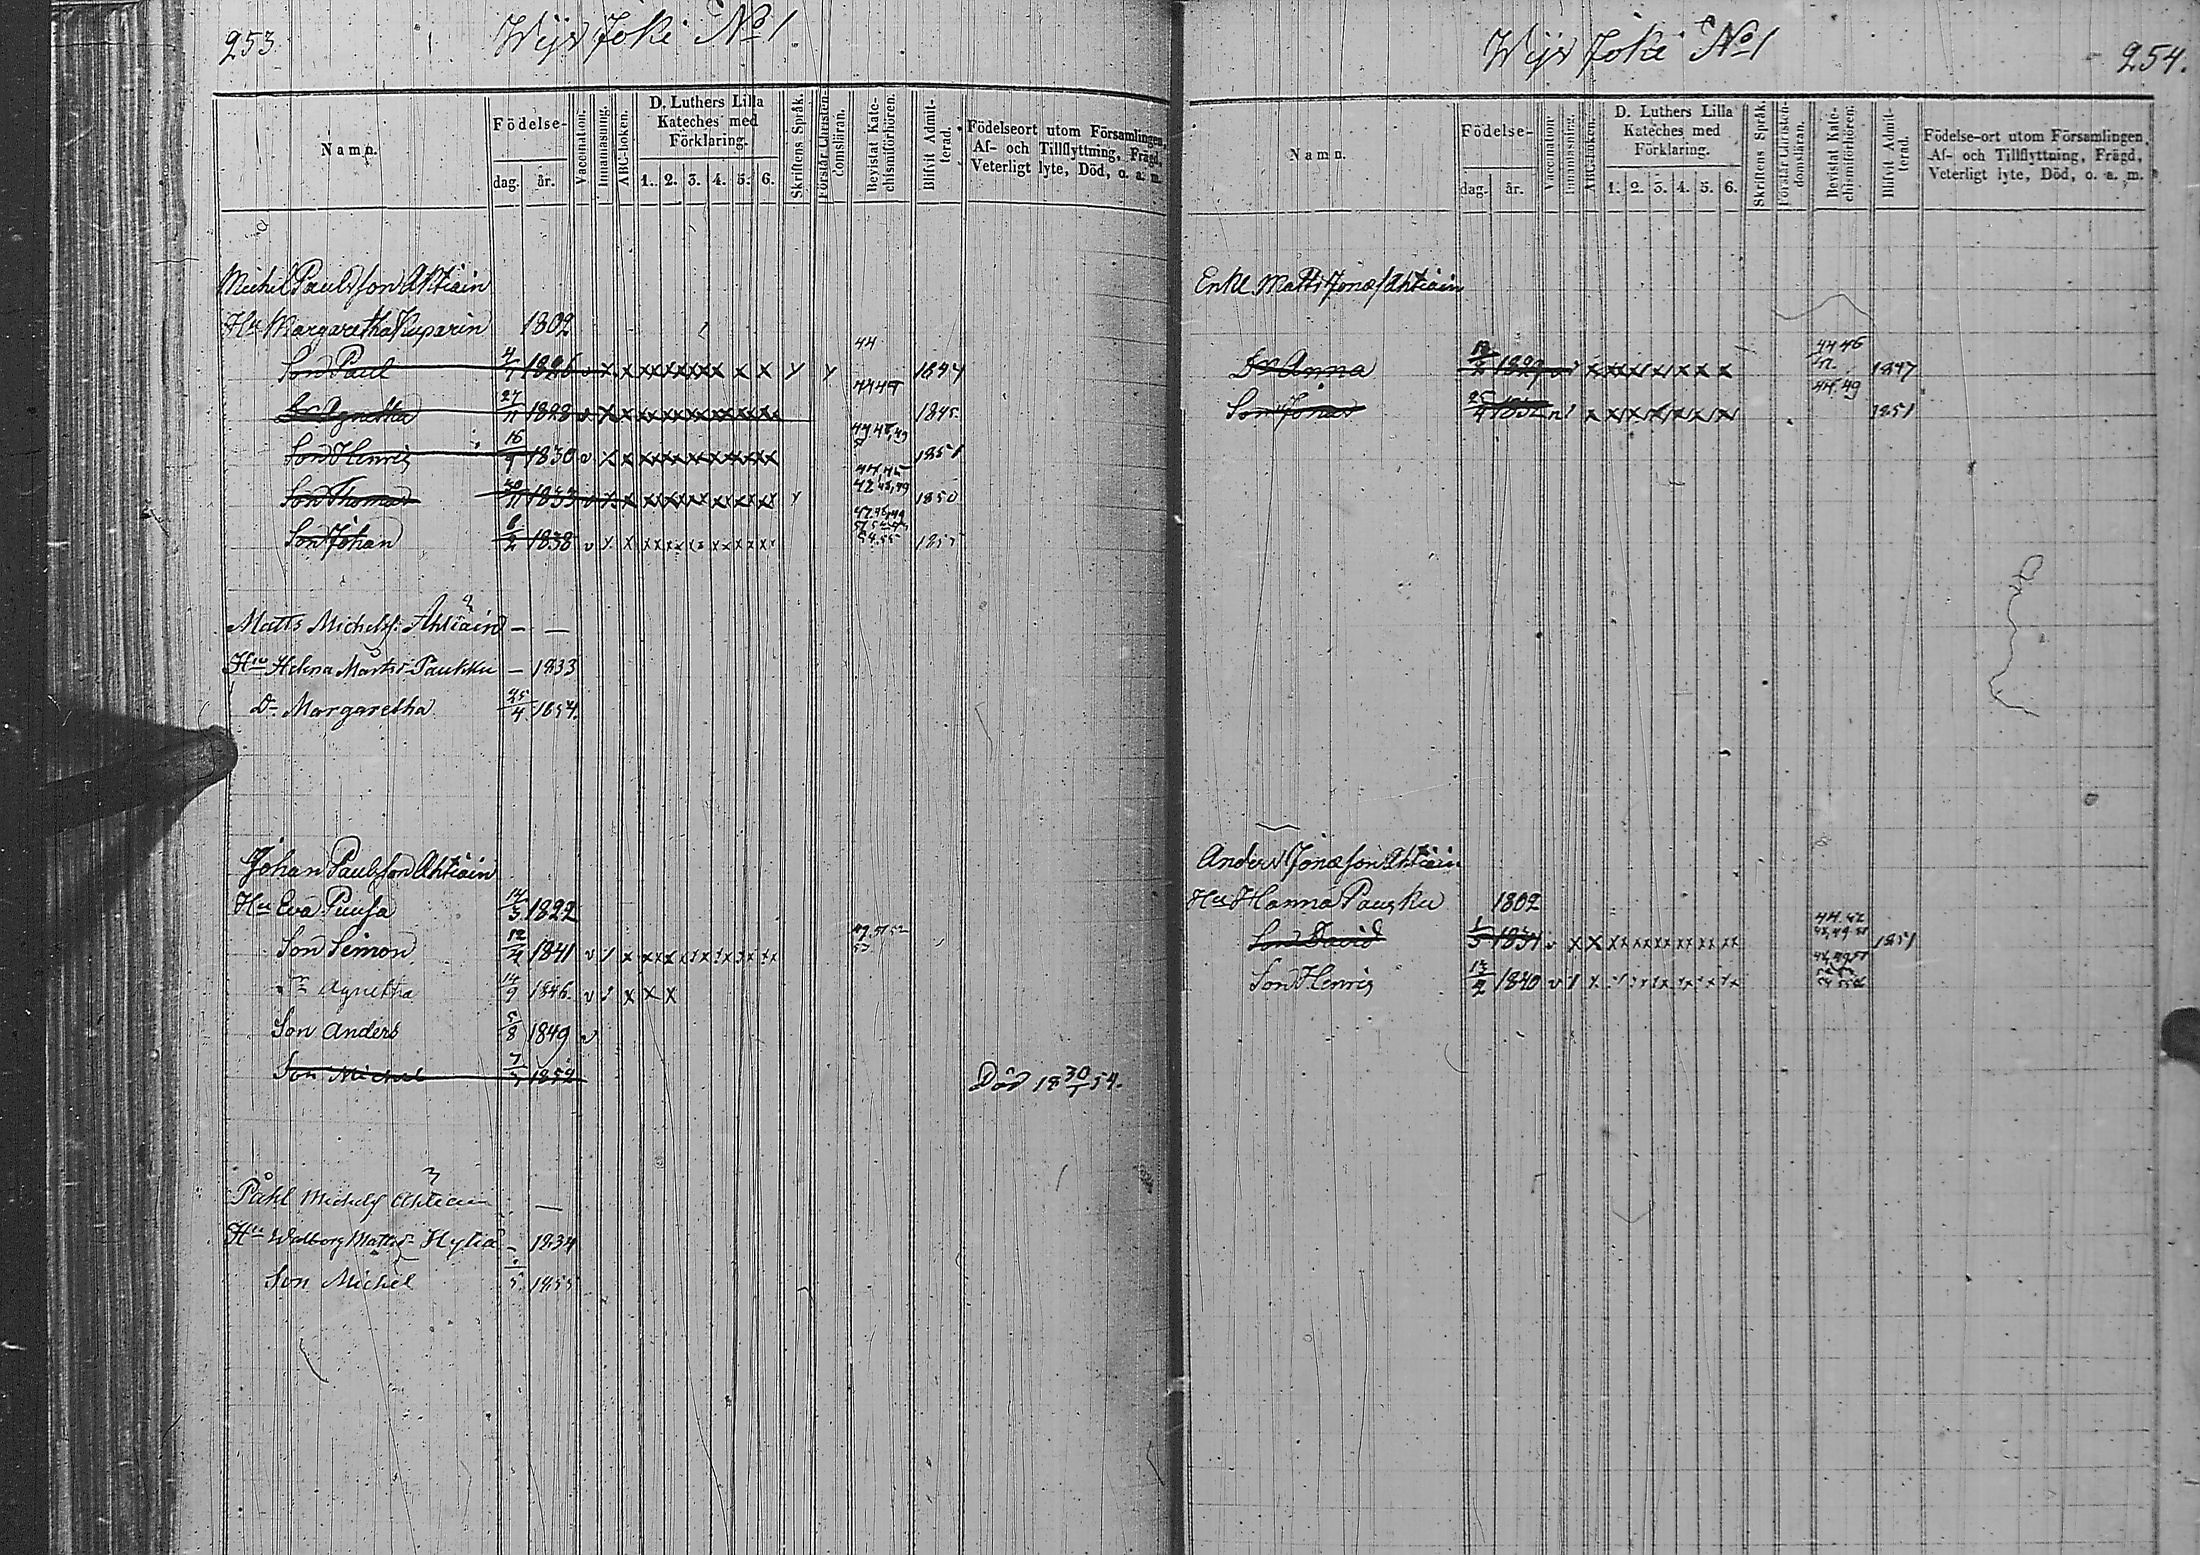 253
Wijs Joki No 1
Namn.
Födelse-
dag. år.
Vaccination.
Innanläsning.
ABC-boken.
D. Luthers Lilla Kateches med Förklaring.
1. 2. 3. 4. 5. 6.
Skriftens Språk.
Förstår Christendomsläran.
Bevistat Katechismiförhören.
Blifvit Admitterad.
Födelseort utom Församlingen, Af- och Tillflyttning, Frägd, Veterligt lyte, Död, o. a. m.
Michel Paulsson Ahtiain
Hu Margaretha Kuparin 1802
44
Son Paul 4/1 1826 v x x x x x x x x x x x 1844
Dr Agnetha 27/11 1828 v x x x x x x x x x 1845
Son Henric 16/9 1830 v x x x x x x x x x 1851
Son Thomas 20/11 1833 v x x x x x x x x x 1850
Son Johan 6/2 1838 v x x x x x x x x 54.55 1855
Matts Michelss: Ahtiain — —
Hu Helena Mattsdr Paukku — 1833
Dr Margaretha 25/4 1854.
Johan Paulsson Ahtiain
Hu Eva Puusa 14/3 1822
Son Simon 12/4 1841 v x x x x x x x 49.51 52
Agnetha 14/9 1846. v x x x
Son Anders 5/8 1849 v
Son Michel 1852 Död 18 30/1 54.
Påhl Michelss Ahtiain —
Hu Walborg Mattsdr — 1834
Son Michel 5 1855
Wijs Joki No 1
254.
Namn.
Födelse-
dag. år.
Vaccination.
Innanläsning.
ABC-boken.
D. Luthers Lilla Kateches med Förklaring.
1. 2. 3. 4. 5. 6.
Skriftens Språk.
Förstår Christendomsläran.
Bevistat Katechismiförhören.
Blifvit Admitterad.
Födelse-ort utom Församlingen, Af- och Tillflyttning, Frägd, Veterligt lyte, Död, o. a. m.
Enkl Matts Jonas Ahtiain
Dr Anna 1829 v x x x x x x x 44 46 1847
Son Jonas x x x x x x x 44.49 1851
Anders Jonasson Ahtiain
Hu Hanna Paukku 1802
Son David 1/5 1834 v x x x x x x x x 1851
Son Henric 13/2 1840 v x x x x x x x